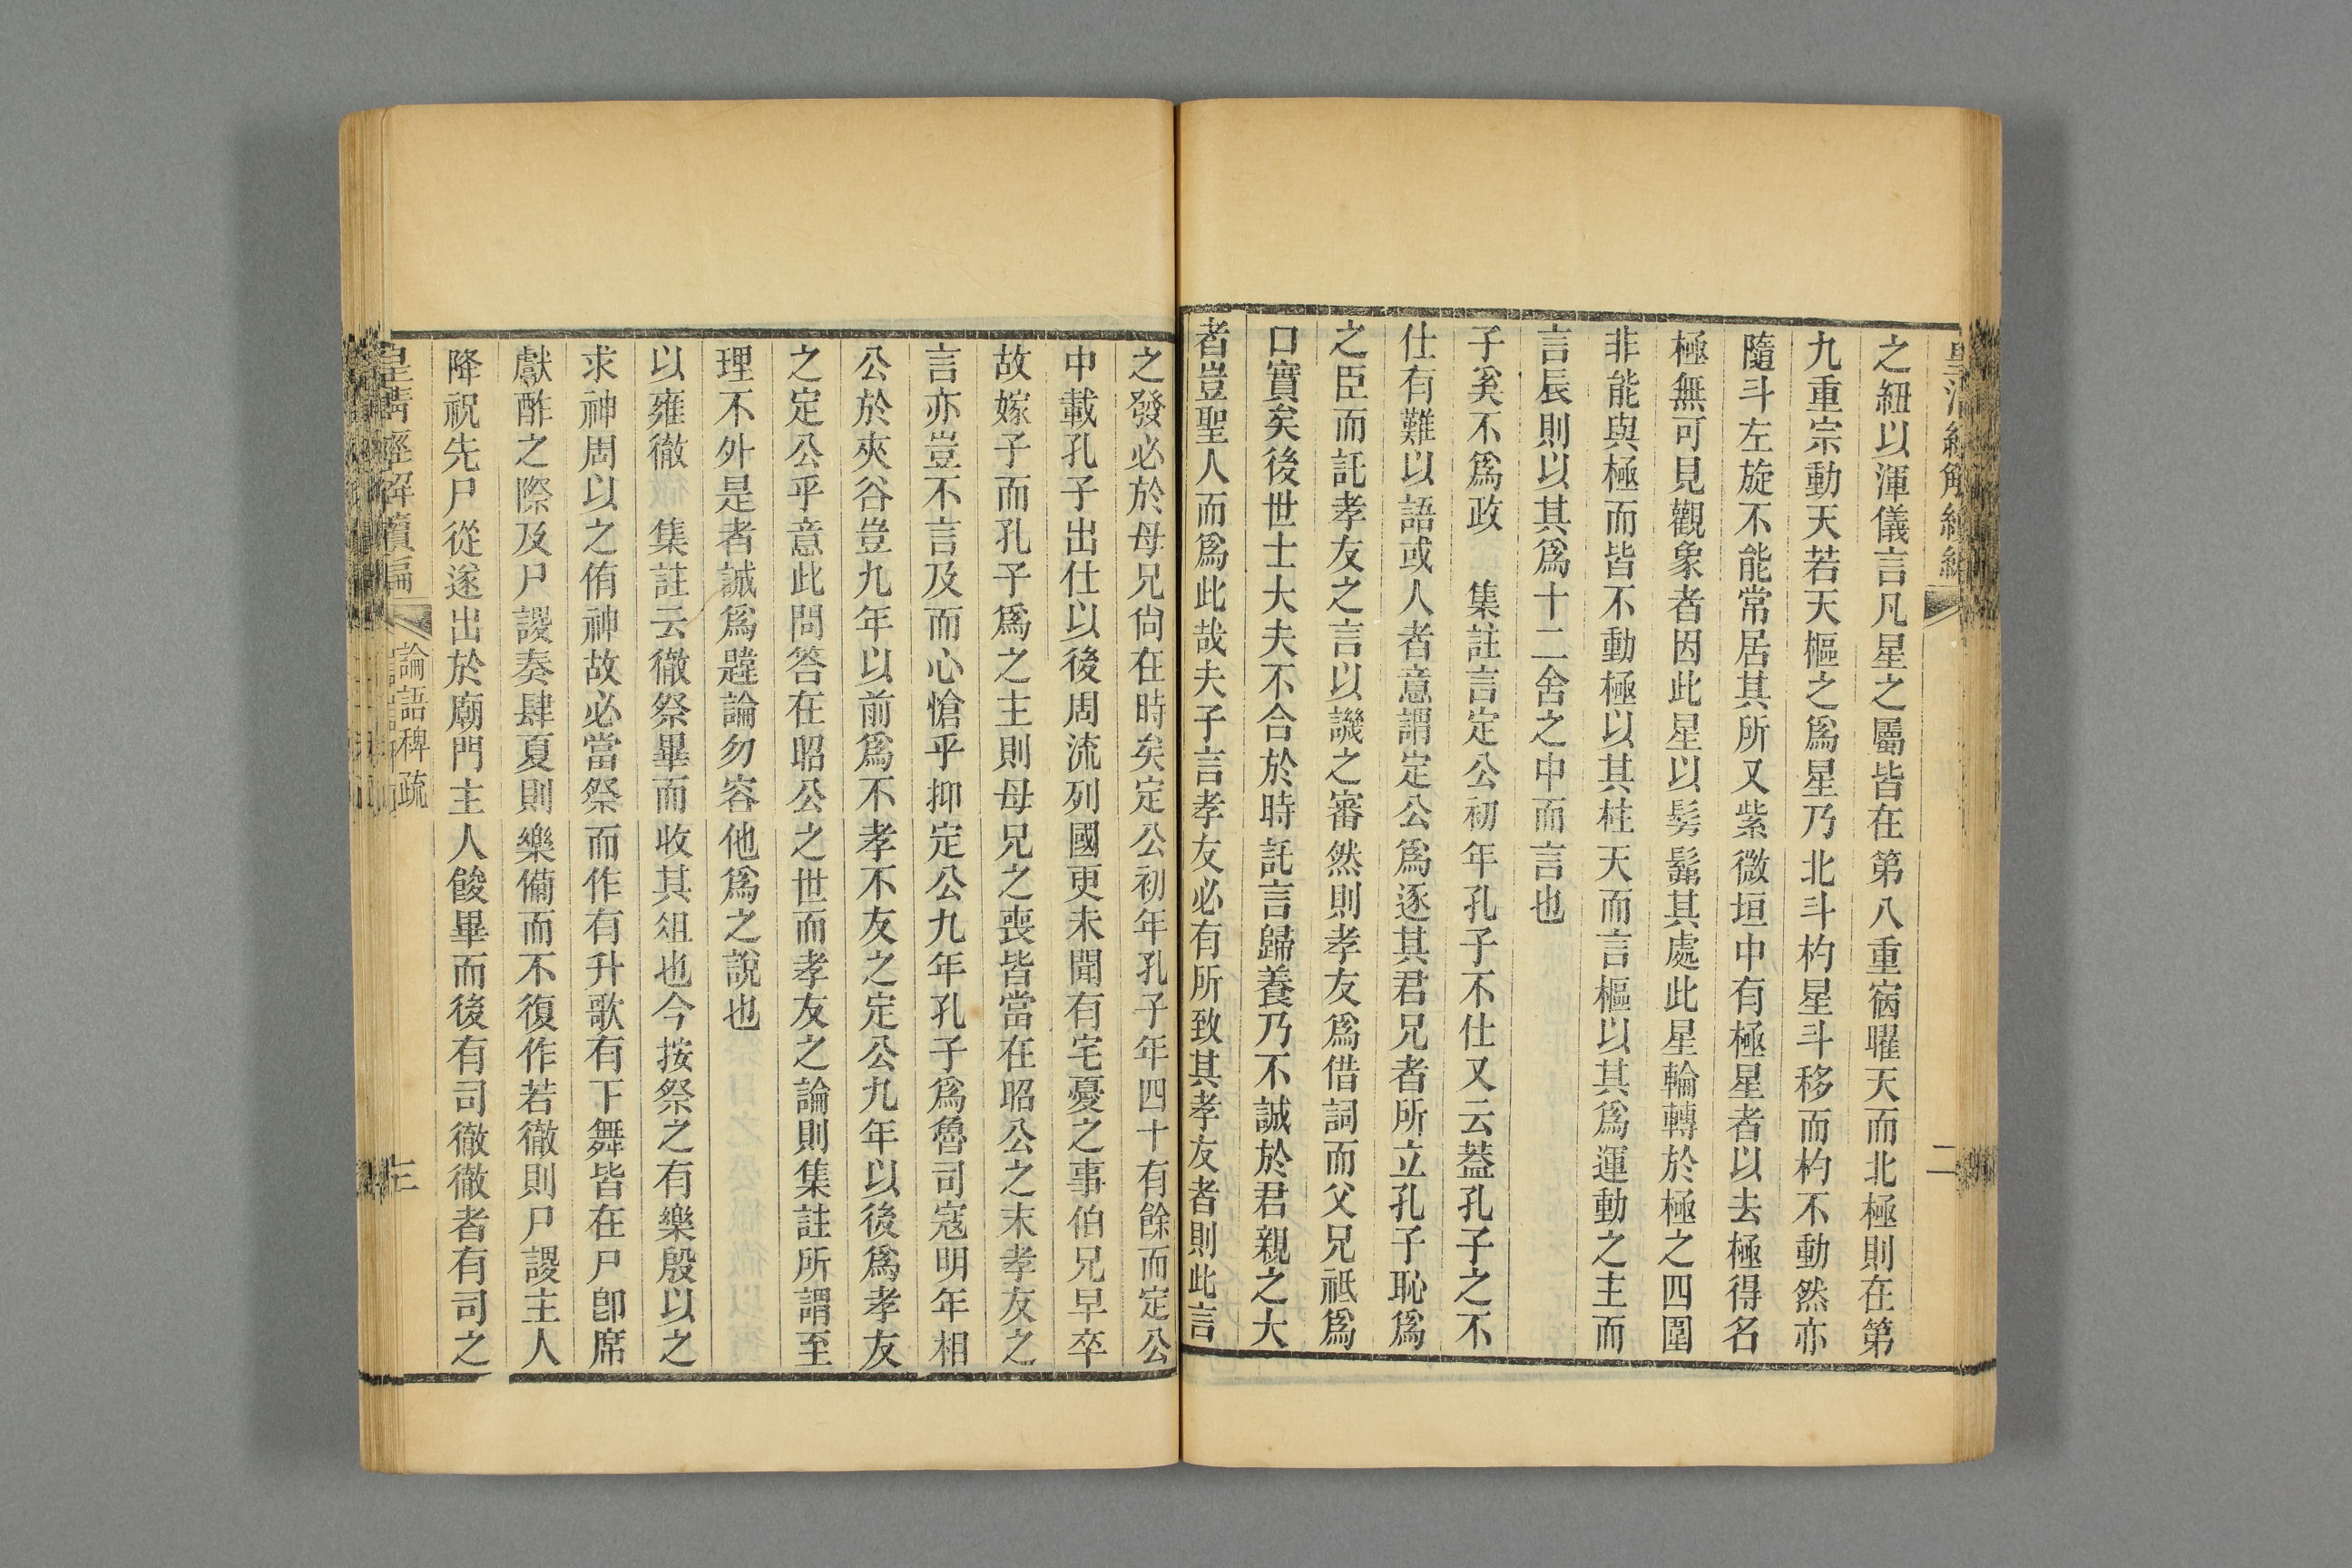 之紐以渾儀言凡星之屬皆在第八重宿曜天而北極則在第
九重宗動天若天樞之爲星乃北斗杓星斗移而杓不動然亦
隨斗左旋不能常居其所又紫微垣中有極星者以去極得名
極無可見觀象者因此星以髣髴其處此星輪轉於極之四圍
非能與極而皆不動極以其柱天而言樞以其爲運動之主而
言辰則以其爲十二舍之中而言也
子奚不爲政 集註言定公初年孔子不仕又云葢孔子之不
仕有難以語或人者意謂定公爲逐其君兄者所立孔子恥爲
之臣而託孝友之言以譏之審然則孝友爲借詞而父兄祗爲
口實矣後世士大夫不合於時託言歸養乃不誠於君親之大
者豈聖人而爲此哉夫子言孝友必有所致其孝友者則此言
之發必於母兄尙在時矣定公初年孔子年四十有餘而定公
中載孔子出仕以後周流列國更未聞有宅憂之事伯兄早卒
故嫁子而孔子爲之主則母兄之喪皆當在昭公之末孝友之
言亦豈不言及而心愴乎抑定公九年孔子爲魯司寇明年相
公於夾谷豈九年以前爲不孝不友之定公九年以後爲孝友
之定公乎意此問答在昭公之世而孝友之論則集註所謂至
理不外是者誠爲韙論勿容他爲之說也
以雍徹 集註云徹祭畢而收其俎也今按祭之有樂殷以之
求神周以之侑神故必當祭而作有升歌有下舞皆在尸卽席
獻酢之際及尸謖奏肆夏則樂備而不復作若徹則尸謖主人
降祝先尸從遂出於廟門主人餕畢而後有司徹徹者有司之
皇清經解續編
論語稗疏
三
二